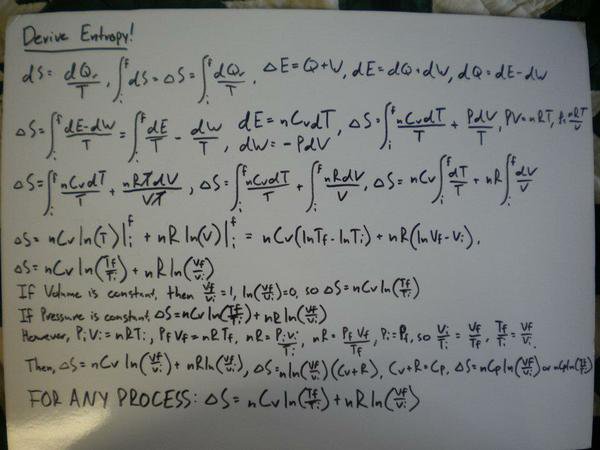 Derive Entropy!
dS = dQr/T, ∫ᵢᶠ dS = ΔS = ∫ᵢᶠ dQr/T, ΔE = Q + W, dE = dQ + dW, dQ = dE - dW
ΔS = ∫ᵢᶠ (dE - dW)/T = ∫ᵢᶠ dE/T - dW/T, dE = nCvdT, dW = -PdV, ΔS = ∫ᵢᶠ nCvdT/T + PdV/T, PV = nRT, P = nRT/V
ΔS = ∫ᵢᶠ nCvdT/T + nRTdV/VT, ΔS = ∫ᵢᶠ nCvdT/T + ∫ᵢᶠ nRdV/V, ΔS = nCv∫ᵢᶠ dT/T + nR∫ᵢᶠ dV/V
ΔS = nCv ln(T)|ᵢᶠ + nR ln(V)|ᵢᶠ = nCv(lnTf - lnTi) + nR(lnVf - Vi),
ΔS = nCv ln(Tf/Ti) + nR ln(Vf/Vi)
If Volume is constant, then Vf/Vi = 1, ln(Vf/Vi) = 0, so ΔS = nCv ln(Tf/Ti)
If Pressure is constant, ΔS = nCv ln(Tf/Ti) + nR ln(Vf/Vi)
However, PiVi = nRTi, PfVf = nRTf, nR = PiVi/Ti, nR = PfVf/Tf, Pi = Pf, so Vi/Ti = Vf/Tf, Tf/Ti = Vf/Vi
Then, ΔS = nCv ln(Vf/Vi) + nR ln(Vf/Vi), ΔS = n ln(Vf/Vi)(Cv + R), Cv + R = Cp, ΔS = nCp ln(Vf/Vi) or nCp ln(Tf/Ti)
FOR ANY PROCESS: ΔS = nCv ln(Tf/Ti) + nR ln(Vf/Vi)